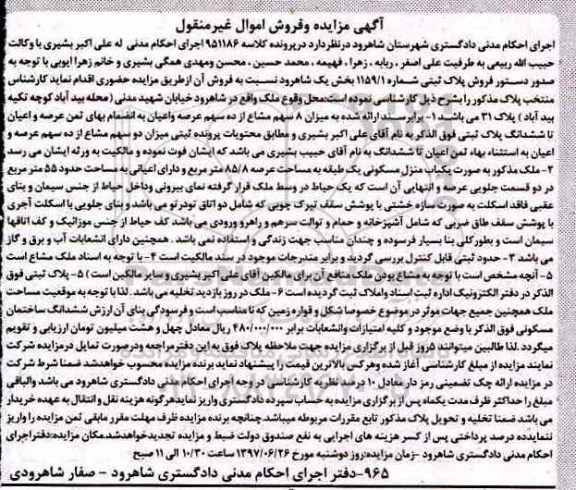 آگهی مزایده وفروش اموال غیرمنقول
اجرای احکام مدنی دادگستری شهرستان شاهرود درنظردارد درپرونده کلاسه ۹۵۱۱۸۶ اجرای احکام مدنی له علی اکبر بشیری با وکالت
حبیب الله ربیعی به طرفیت علی اصغر ، ربابه ، زهرا ، فهیمه ، محمد حسین ، محسن ومهدی همگی بشیری و خانم زهرا ایوبی با توجه به
صدور دستور فروش پلاک ثبتی شماره ۱۱۵۹/۱ بخش یک شاهرود نسبت به فروش آن ازطریق مزایده حضوری اقدام نماید کارشناس
منتخب پلاک مذکور را بشرح ذیل کارشناسی نموده است:محل وقوع ملک واقع در شاهرود خیابان شهید مدنی (محله بید آباد کوچه تکیه
بید آباد ) پلاک ۳۱ می باشد ۱- برابر سند ارائه شده به میزان ۸ سهم مشاع از ده سهم عرصه واعیان به انضمام بهای ثمن عرصه و اعیان
تا ششدانگ پلاک ثبتی فوق الذکر به نام آقای علی اکبر بشیری و مطابق محتویات پرونده ثبتی میزان دو سهم مشاع از ده سهم عرصه و
اعیان به استثناء بهاء ثمن اعیان تا ششدانگ به نام آقای حبیب بشیری می باشد که ایشان فوت نموده و مالکیت به ورثه ایشان می رسد
۲- ملک مذکور به صورت یکباب منزل مسکونی یک طبقه به مساحت عرصه ۸۵/۸ متر مربع و دارای اعیانی به مساحت حدود ۵۵ متر مربع
در دو قسمت جلویی عرصه و انتهایی آن است که یک حیاط در وسط ملک قرار گرفته نمای بیرونی وداخل حیاط از جنس سیمان و بنای
عقبی فاقد اسکلت به صورت سازه خشتی با پوشش سقف تیرک چوبی که شامل دو اتاق تودرتو می باشد و بنای جلویی با اسکلت آجری
با پوشش سقف طاق ضربی که شامل آشپزخانه و حمام و توالت سرهم و راهرو ورودی می باشد کف حیاط از جنس موزائیک و کف اتاقها
سیمان است و بطور کلی بنا بسیار فرسوده و چندان مناسب جهت زندگی و استفاده نمی باشد . همچنین دارای انشعابات آب و برق و گاز
می باشد ۳- حدود ثبتی قابل کنترل بررسی گردید و برابر مندرجات موجود در سند مالکیت است ۴- با توجه به اسناد ملک مشاع است
۵- آنچه مشخص است با توجه به مشاع بودن ملک منافع آن برای مالکین آقای علی اکبر بشیری و سایر مالکین است ) ۵- پلاک ثبتی فوق
الذکر در دفتر الکترونیک اداره ثبت اسناد واملاک ثبت گردیده است ۶- ملک در روز بازدید تخلیه می باشد . لذا با توجه به موقعیت مساحت
ملک همچنین جمیع جهات موثر در موضوع خصوصا شکل و قواره زمین که نامناسب است و فرسودگی بنای آن ارزش ششدانگ ساختمان
مسکونی فوق الذکر با وضع موجود و کلیه امتیازات وانشعابات برابر ۴۸۰/۰۰۰/۰۰۰ ریال معادل چهل و هشت میلیون تومان ارزیابی و تقویم
میگردد .لذا طالبین میتوانند ۵روز قبل از برگزاری مزایده جهت ملاحظه پلاک فوق به این دفترمراجعه ودرصورت تمایل درمزایده شرکت
نمایند مزایده از مبلغ کارشناسی آغاز شده وهرکس بالاترین قیمت را پیشنهاد نماید برنده مزایده محسوب خواهدشد ضمنا شرط شرکت
در مزایده ارائه چک تضمینی رمز دار معادل ۱۰ درصد نظریه کارشناسی در وجه اجرای احکام مدنی دادگستری شاهرود می باشد والباقی
مبلغ را حداکثر ظرف مدت یکماه پس از برگزاری مزایده به حساب سپرده دادگستری واریز نمایدهرگونه هزینه نقل و انتقال به عهده خریدار
می باشد ضمنا تخلیه و تحویل پلاک مذکور تابع مقررات مربوطه میباشد.چنانچه برنده مزایده ظرف مهلت مقرر مابقی ثمن مزایده را واریز
ننمایدده درصد پرداختی پس از کسر هزینه های اجرایی به نفع صندوق دولت ضبط و مزایده تجدیدخواهدشد.مکان مزایده:دفتراجرای
احکام مدنی دادگستری شاهرود -زمان مزایده:روز دوشنبه مورخ ۱۳۹۷/۰۶/۲۶ ساعت ۱۰/۳۰ الی ۱۱ صبح
۹۶۵-دفتر اجرای احکام مدنی دادگستری شاهرود - صفار شاهرودی